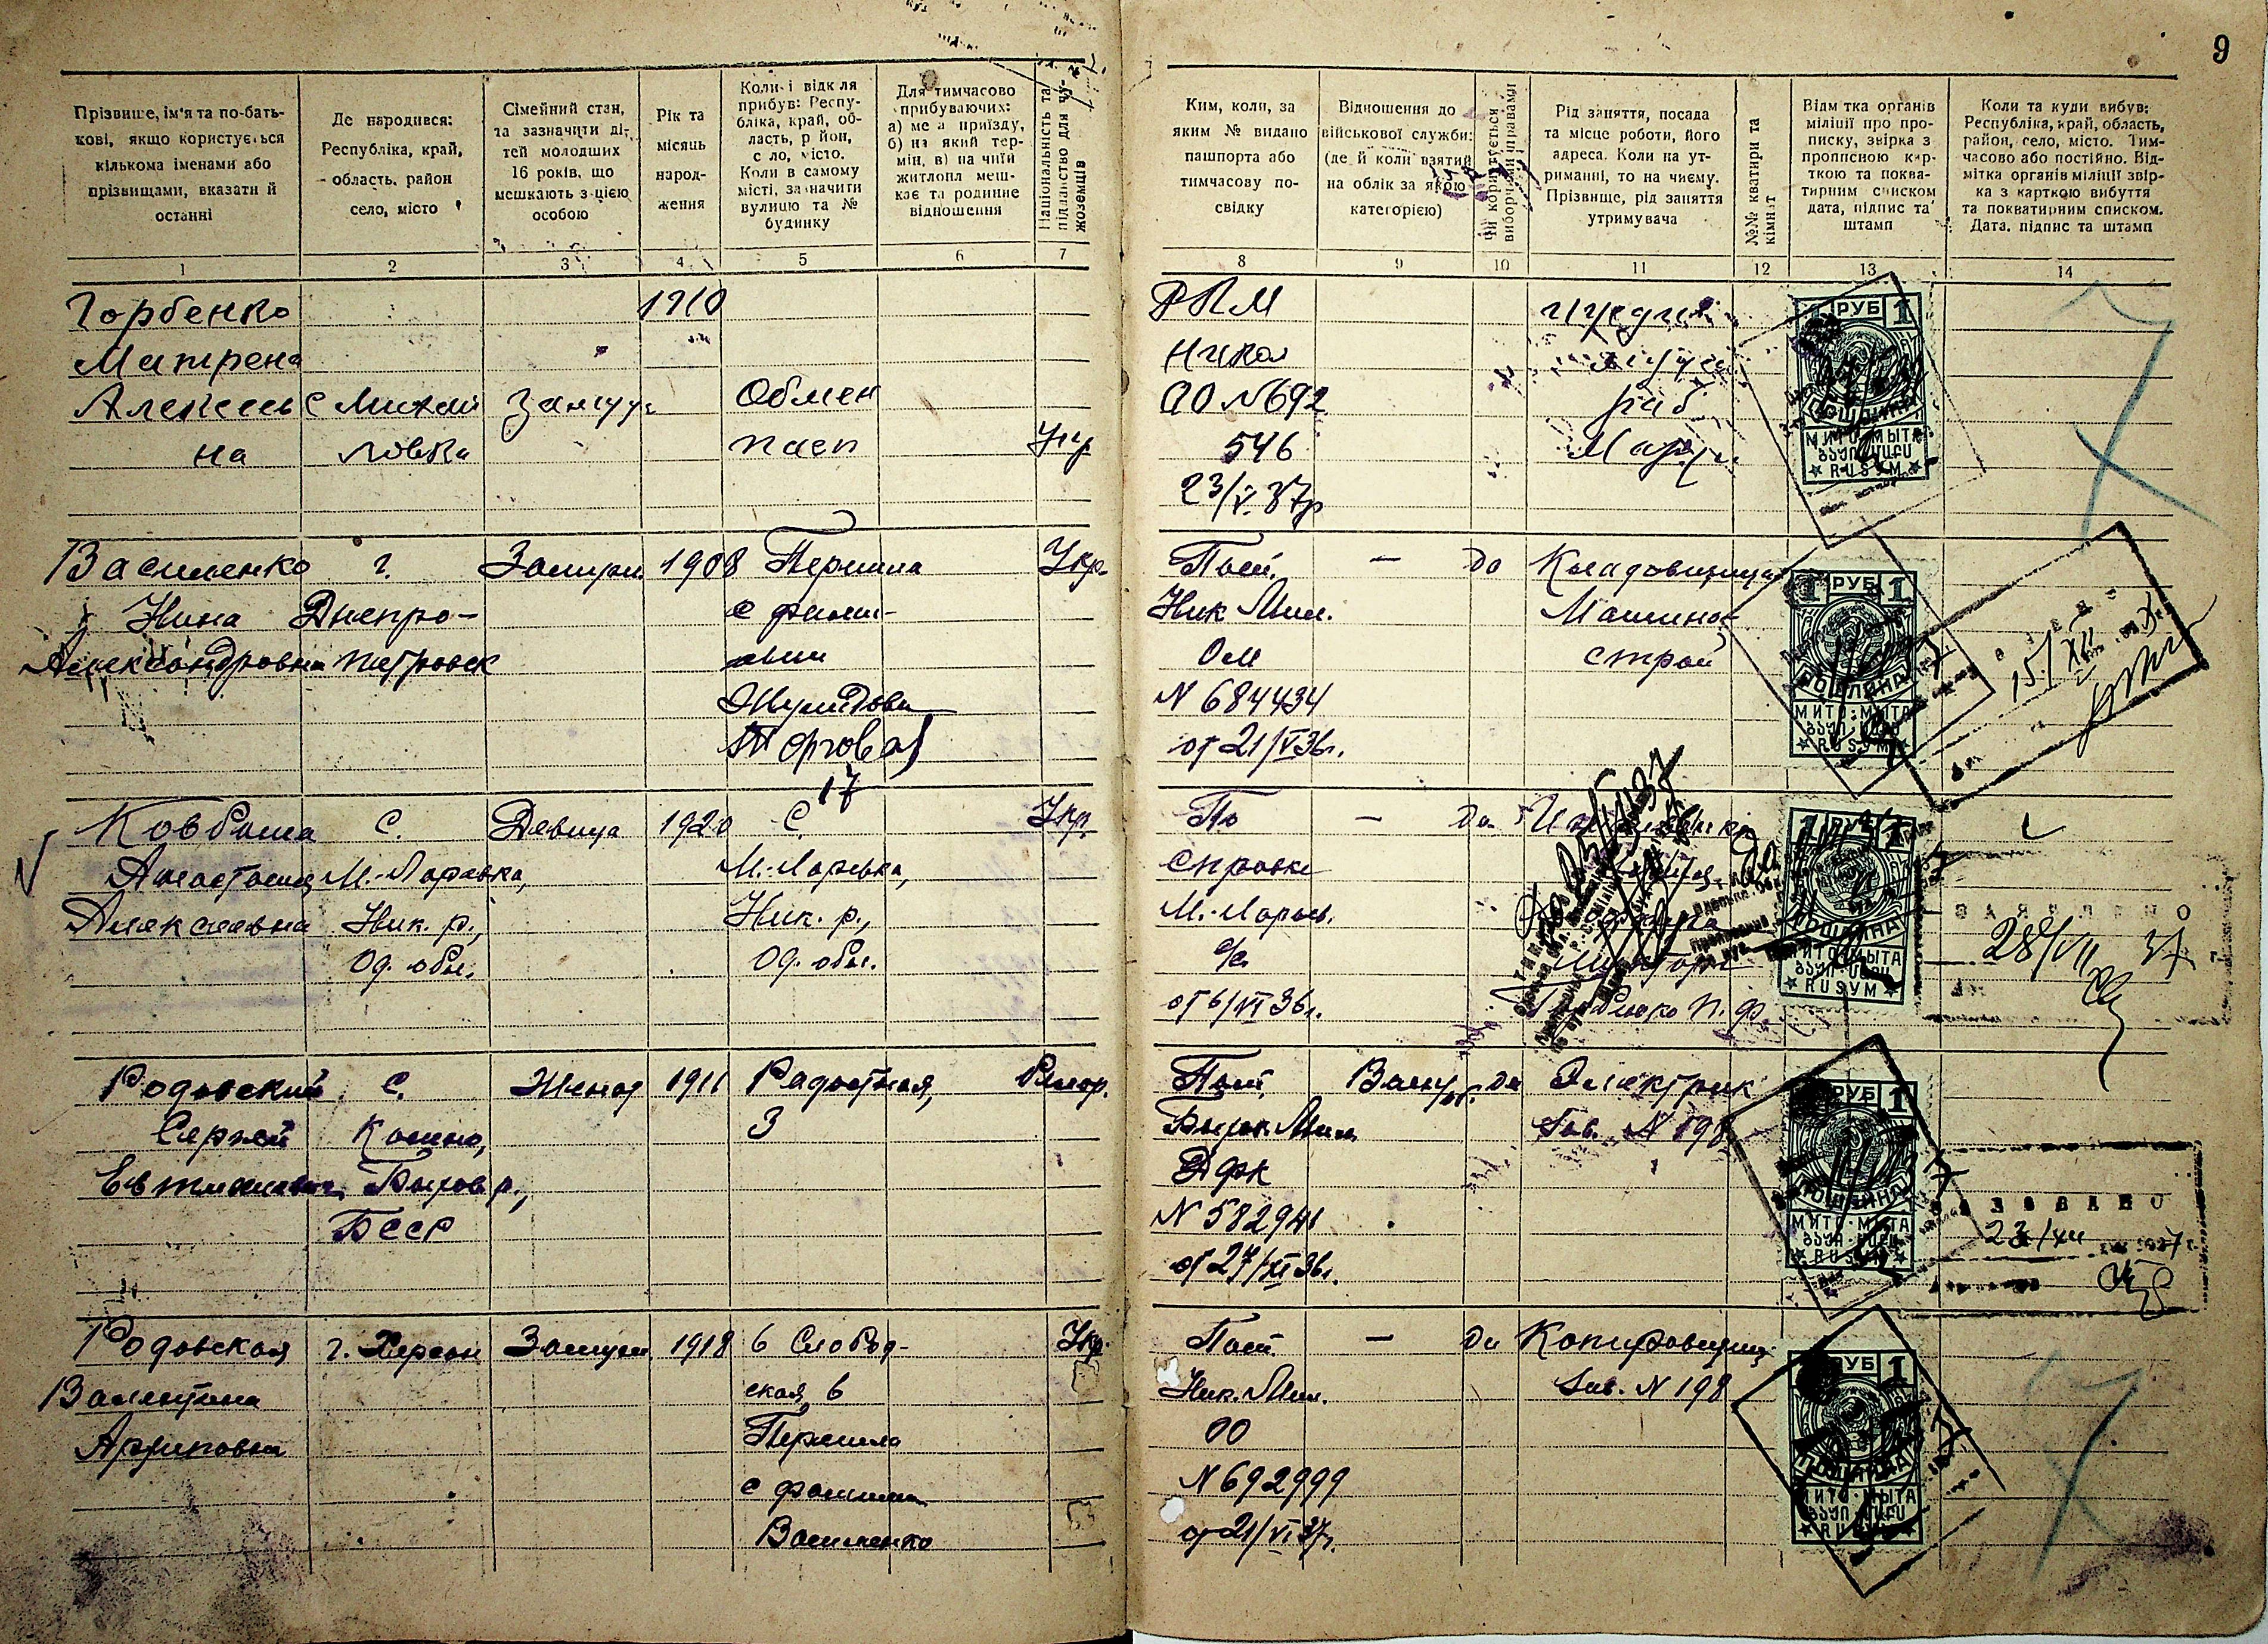 9
Прізвище, ім'я та по-бать-
кові, якщо користується
кількома іменами або
прізвищами, вказати й
останні
Де народився:
Республіка, край,
область, район
село, місто
Сімейний стан,
та зазначити ді-
тей молодших
16 років, що
мешкають з цією
особою
Рік та
місяць
народ-
ження
Коли і відкіля
прибув: Респу-
бліка, край, об-
ласть, район,
село, місто.
Коли в самому
місті, зазначити
вулицю та №
будинку
Для тимчасово
прибуваючих:
а) мета приїзду,
б) на який тер-
мін, в) на чиїй
житлопл меш-
кає та родинне
відношення
Національність та
підданство для чу-
жоземців
Ким, коли, за
яким № видано
пашпорта або
тимчасову по-
свідку
Відношення до
військової служби:
(де й коли взятий
на облік за якою
категорією)
Чи користується
виборчими правами
Рід заняття, посада
та місце роботи, його
адреса. Коли на ут-
риманні, то на чиєму.
Прізвище, рід заняття
утримувача
№№ кватири та
кімнат
Відмітка органів
міліції про про-
писку, звірка з
прописною кар-
ткою та поква-
тирним списком
дата, підпис та
штамп
Коли та куди вибув:
Республіка, край, область,
район, село, місто. Тим-
часово або постійно. Від-
мітка органів міліції звір-
ка з карткою вибуття
та покватирним списком.
Дата, підпис та штамп
1 2 3 4 5 6 7 8 9 10 11 12 13 14
Горбенко
Матрена
Алексеев
на
с Михай
ловка
Замуж
1910
Обмен
пасп
Укр
РКМ
Никол
ОО №692
546
23/V.37р
раб
1 РУБ 1
ПОШЛИНА
МИТО·МЫТА
RUSYM
Василенко
Нина
Александровна
г.
Днепро-
петровск
Замужн
1908
Перешла
с фами-
лии
Торговая
17
Укр.
Посп.
Ник Мил.
ОМ
N 684434
от 21/VI 36г.
—
да
Кладовщица
Машино-
строй
1 РУБ 1
ПОШЛИНА
МИТО·МЫТА
RUSYM
15/XII
Анастасия
Алексеевна
С.
М.-Ларевка,
Ник. р.,
Од. обл.
Девица
1920
С.
М.-Ларевка,
Ник. р.,
Од. обл.
Укр.
По
справке
М.-Ларьев.
с/с
от 6/VI 36г.
—
да
П. Ф.
1 1
ПОШЛИНА
МИТО·МЫТА
RUSYM
ЗАЯВЛЕНО
28/VII 37
Родовский
Сергей
Евтихиевич
С.
Быхов р.,
БССР
Женат
1911
Радостная,
3
Белор.
Посп.
Быхов. Мил.
АФК
N 582941
от 27/XI 36г.
да
Электрик
Зав. N 198
РУБ 1
ПОШЛИНА
МИТО·МЫТА
RUSYM
23/XII
Родовская
Валентина
Архиповна
г. Херсон
Замужн.
1918
6 Слобод-
ская, 6
Перешла
с фамилии
Василенко
Укр.
Посп.
Ник. Мил.
ОО
N 692999
от 21/VI 37г.
—
да
Копировщица
Зав. N 198
РУБ 1
ПОШЛИНА
МИТО·МЫТА
RUSYM